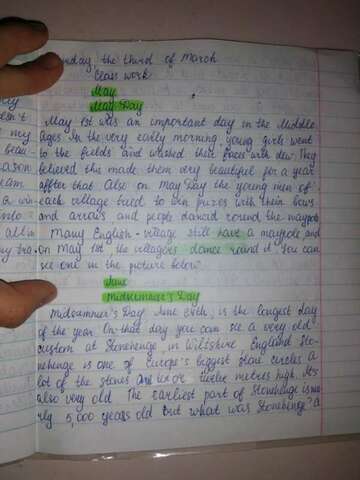 day, the third of March
Class work
May
May Day
May 1st was an important day in the Middle
Ages. In the very early morning, young girls went
to the fields and washed their faces with dew. They
believed this made them very beautiful for a year
after that. Also on May Day the young men of
each village tried to win prizes with their bows
and arrows and people danced round the maypole
Many English-village still have a maypole and
on May 1st, the villagers dance round it. You can
see one in the picture below
June
Midsummer's Day
Midsummer's Day June 24th, is the longest day
of the year. On that day you can see a very old
custom at Stonehenge in Wiltshire, England Sto-
nehenge is one of Europe's biggest stone circles A
lot of the stones are twelve metres high. It's
also very old The earliest part of Stonehenge is nea
rly 5,000 years old But what was Stonehenge? A